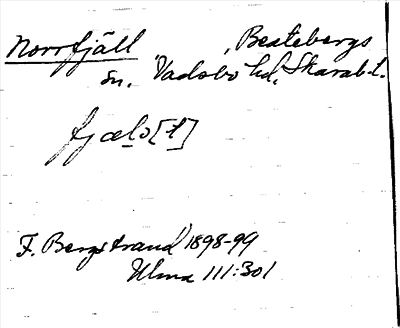 Norrfjäll , Beatebergs
sn. Vadsbo hd. Skarab. l.
fjælo[t]
F. Bergstrand 1898-99
Ulma 111:301